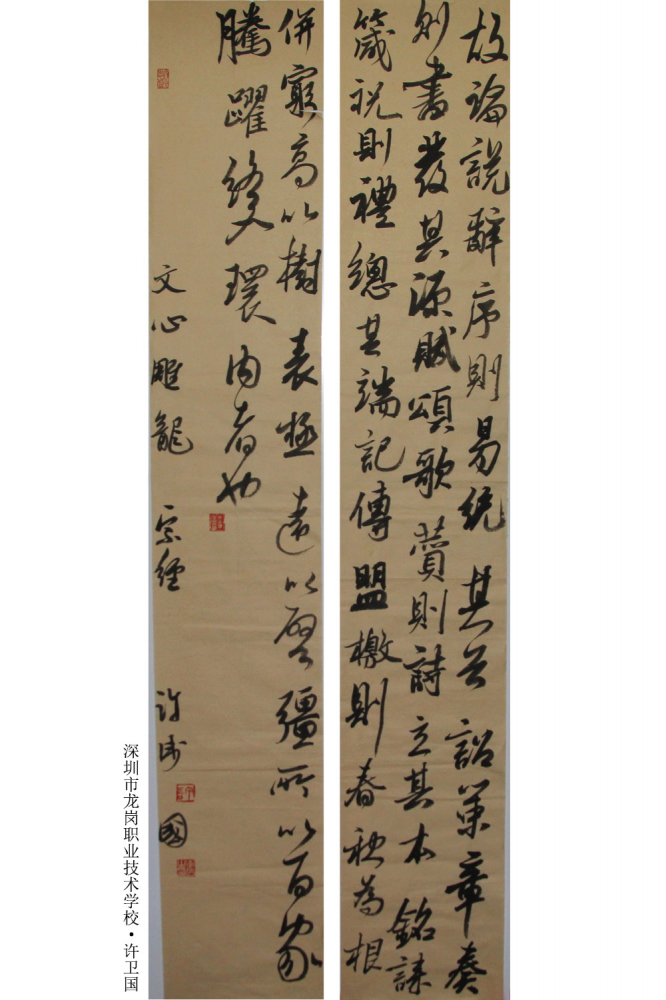 故論說辭序則易統其首詔策章奏
則書發其源賦頌歌贊則詩立其本銘誄
箴祝則禮總其端記傳盟檄則春秋為根
併窮高以樹表極遠以啓疆所以百家
騰躍終入環內者也
文心雕龍 宗經 許衛國
深圳市龙岗职业技术学校·许卫国